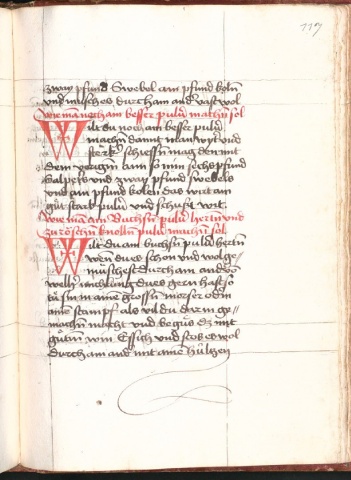 117
zway pfund Swebel ain pfund koln
vnd misches durch ain ander vast wol
wie man noch ain besser pulu machn sol
Wilt du noch ain besser pulu
machn damit man wyt vnd
sterck schiessn mag den nit
dem vorign ain so nim sechs pfund
salpeters vnd zway pfund swebels
vnd ain pfund kolen das wirt ain
gůt starck pulu vnd schust wit
wie man ain Buchsn pulu hertn vnd
zů knolln pulu machn sol
Wilt du ain buchsn pulu hertn
wen du es schon vnd wol ge
můschest durch ain ander
welher mischung du es gern hast so
tů sin in ainē grossn morser oder in
aine stampf als vil du darin ge
machn macht vnd begůs dz mit
gůtem vin Essich vnd stos es wol
durch ain and mit aine hůltzen